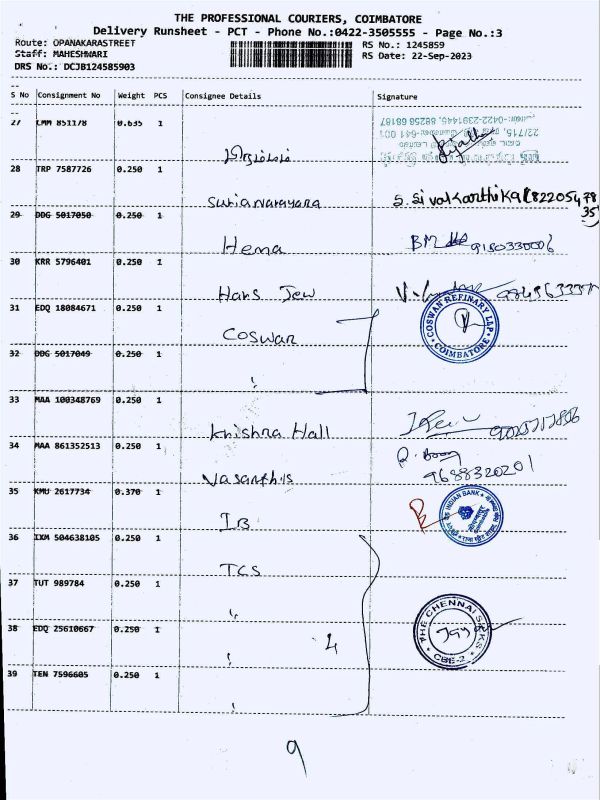 THE PROFESSIONAL COURIERS, COIMBATORE
Delivery Runsheet - PCT - Phone No.:0422-3505555 - Page No.:3
Route: OPANAKARASTREET
RS No.: 1245859
Staff: MAHESHWARI
RS Date: 22-Sep-2023
DRS No.: DCJB124585903
S No Consignment No Weight PCS Consignee Details Signature
27 CMM 851178 0.635 1
28 TRP 7587726 0.250 1
29 DDG 5017050 0.250 1
Hema 9180330006
30 KRR 5796401 0.250 1
Hans Jew
31 EDQ 18084671 0.250 1
COSWAN
COSWAN REFINARY LLP COIMBATORE
32 DDG 5017049 0.250 1
33 MAA 100348769 0.250 1
Krishna Hall
34 MAA 861352513 0.250 1
9688320201
35 KMU 2617734 0.370 1
IB
INDIAN BANK
36 IXM 504638105 0.250 1
TCS
37 TUT 989784 0.250 1
38 EDQ 25610667 0.250 1
4
THE CHENNAI SILKS CBE-2
39 TEN 7596605 0.250 1
9